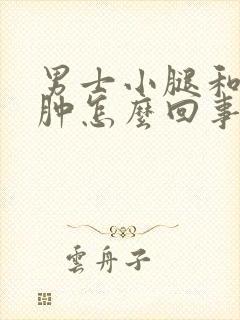 男士小腿和
肿怎麼回事
雲舟子